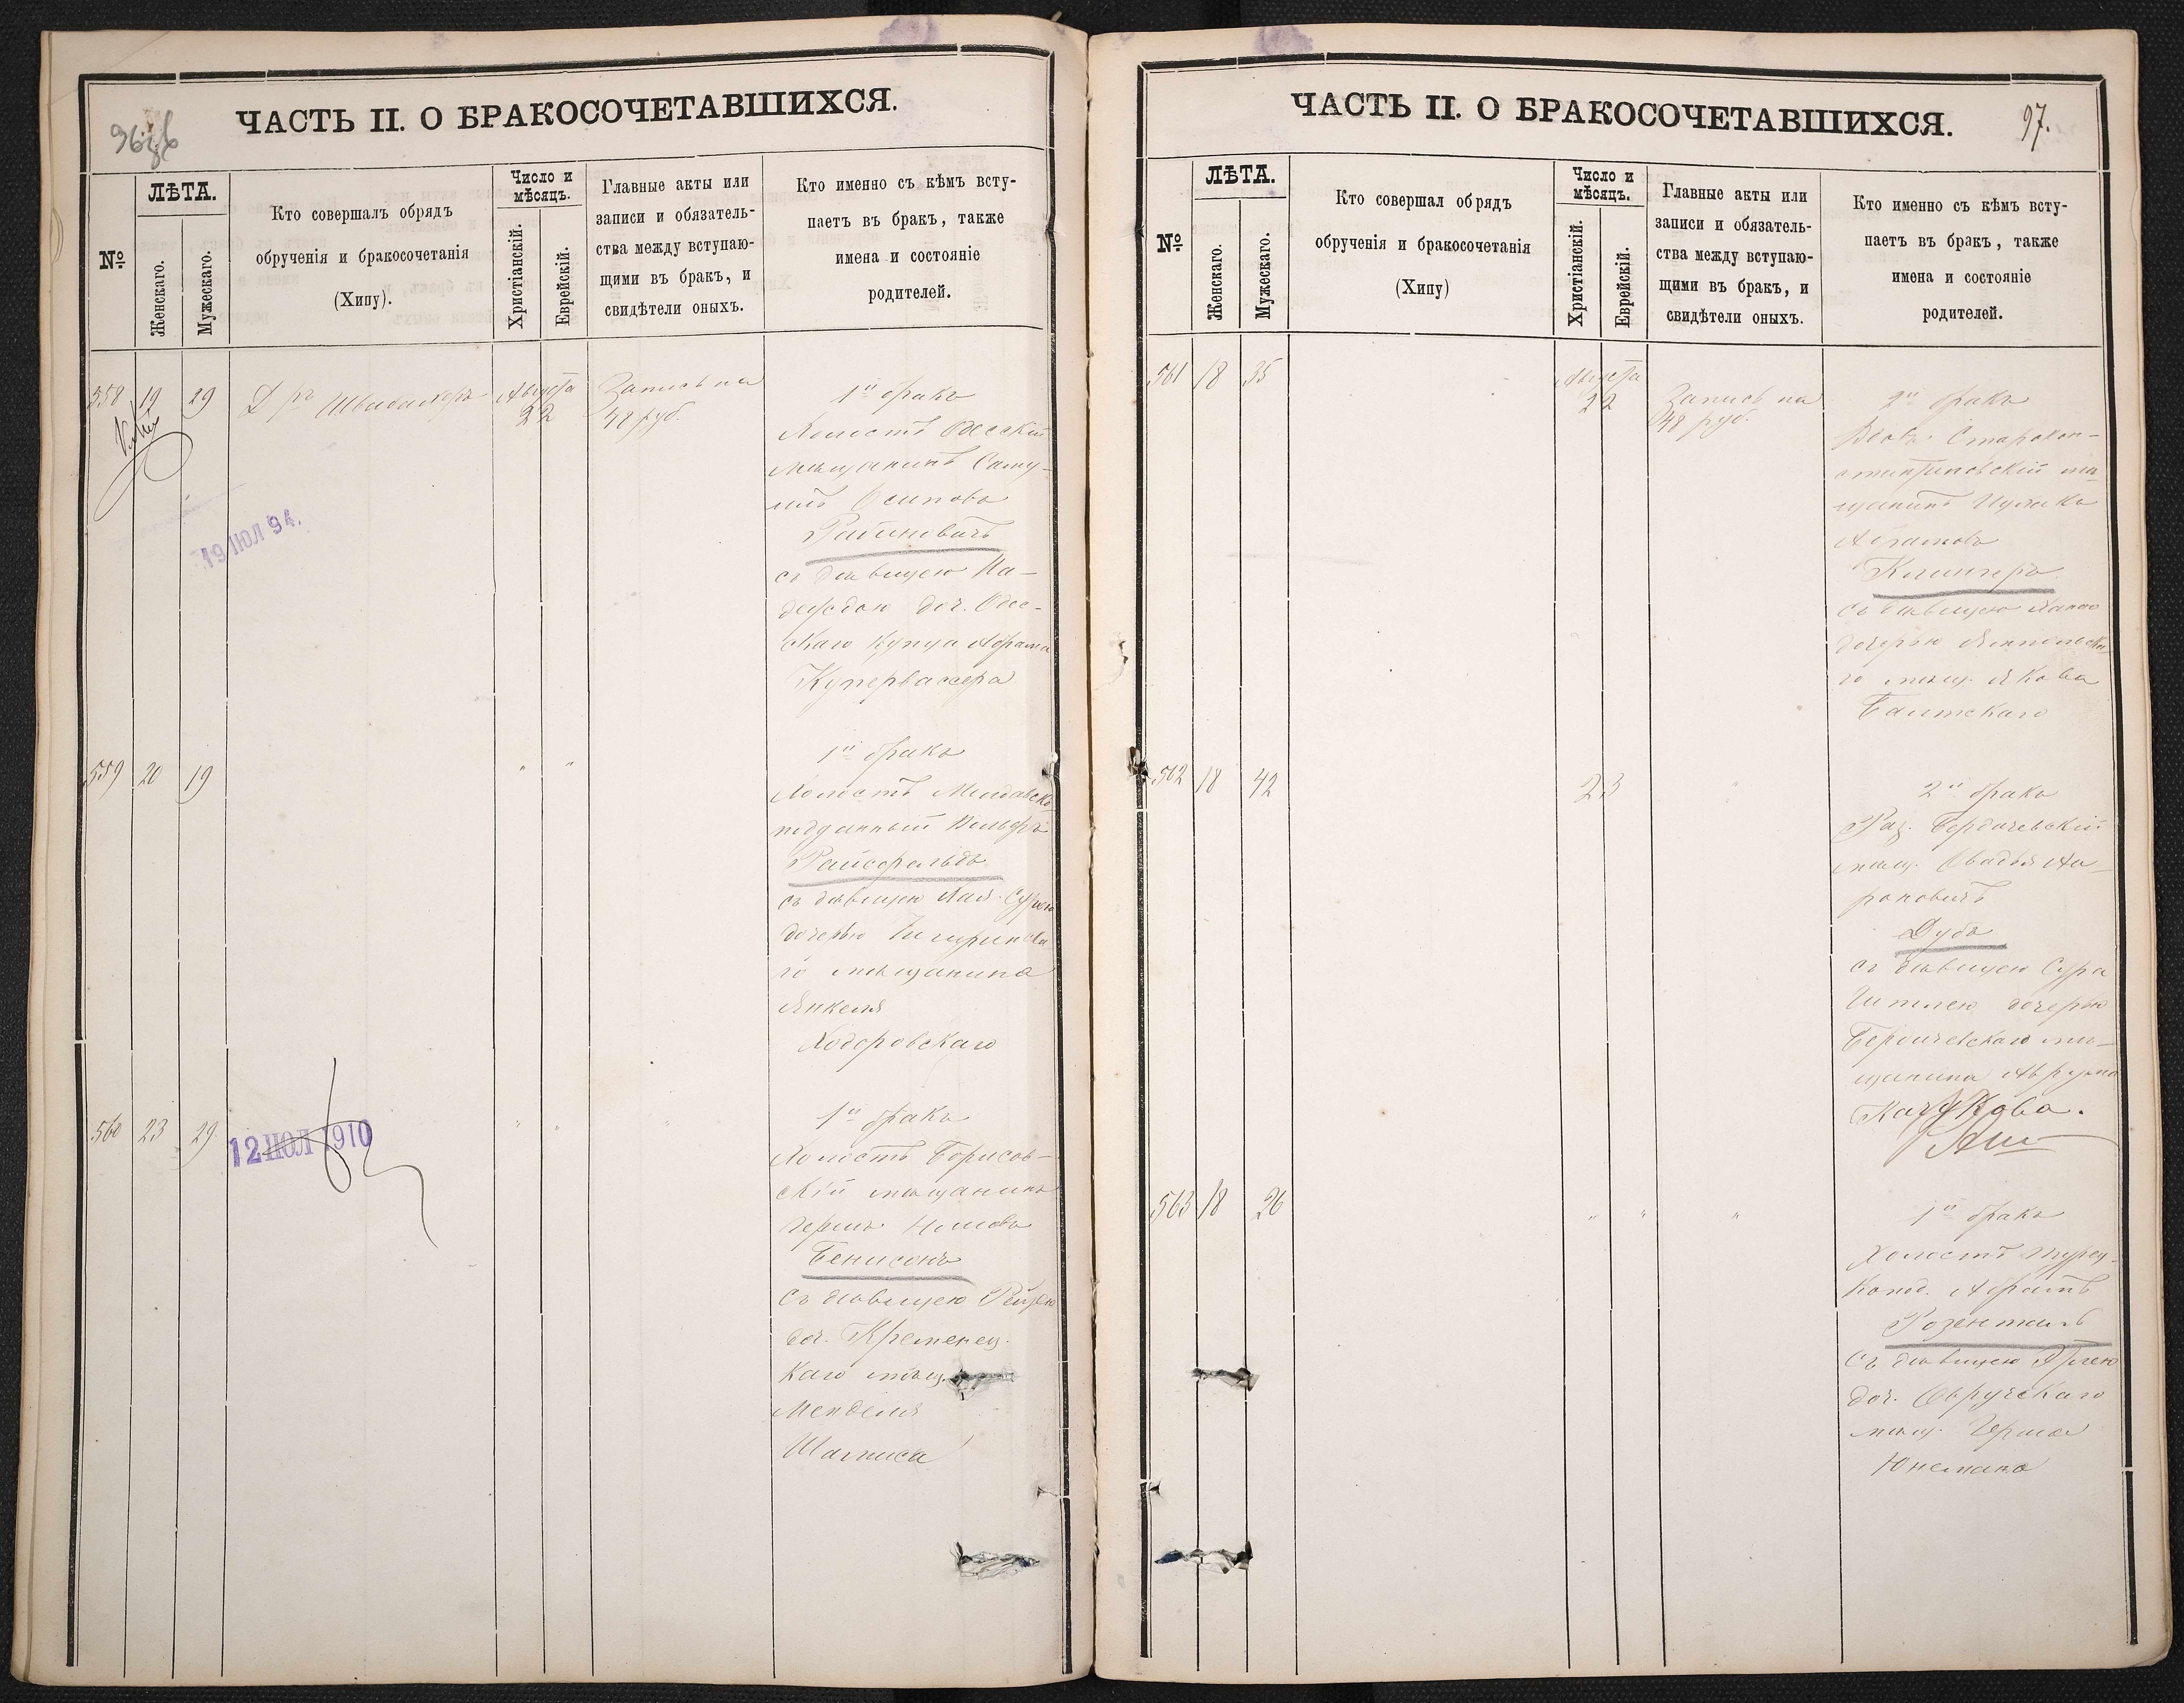 ЧАСТЬ II. О БРАКОСОЧЕТАВШИХСЯ.
№
ЛѢТА.
Женскаго.
Мужескаго.
Кто совершалъ обрядъ
обрученія и бракосочетанія
(Хипу).
Число и
мѣсяцъ.
Христіанскій.
Еврейскій.
Главные акты или
записи и обязатель-
ства между вступаю-
щими въ бракъ, и
свидѣтели оныхъ.
Кто именно съ кѣмъ всту-
паетъ въ бракъ, также
имена и состояніе
родителей.
558 19 29
Д рѣ Швабахеръ
Августа
22
Запись на
48 руб.
1й бракъ
Холостъ Одесскій
мѣщанинъ Саму-
илъ Осиповъ
Рабиновичъ
съ дѣвицею На-
деждою доч. Одес-
скаго купца Абрама
Купервассера
19 ІЮЛ 94.
559 20 19
" "
1й бракъ
Холостъ Молдавск.
подданный Вольфъ
Райсфельдъ
съ дѣвицею Хая-Сурою
дочерью Чигиринска
го мѣщанина
Янкеля
Ходоровскаго
560 23 29
12 ІЮЛ 1910
" " "
1й бракъ
Холостъ Борисов-
скій мѣщанинъ
Гершъ
Бенисонъ
съ дѣвицею Рейзею
доч. Кременец.
каго мѣщ.
Менделя
Шагниса
ЧАСТЬ II. О БРАКОСОЧЕТАВШИХСЯ.
97.
№
ЛѢТА.
Женскаго.
Мужескаго.
Кто совершал обрядъ
обрученія и бракосочетанія
(Хипу)
Число и
мѣсяцъ.
Христіанскій.
Еврейскій.
Главные акты или
записи и обязатель-
ства между вступаю-
щими въ бракъ, и
свидѣтели оныхъ.
Кто именно съ кѣмъ всту-
паетъ въ бракъ, также
имена и состояніе
родителей.
561 18 35
Августа
22
Запись на
48 руб.
2й бракъ
Вдовъ Старокон-
стантиновскій мѣ
щанинъ Ицхакъ
Абрамовъ
Клингеръ
съ дѣвицею Ханою
дочерью Ямпольска-
го мѣщ. Якова
Балтскаго
562 18 42
23
"
2й бракъ
Раз. Бердичевскій
мѣщ. Овадья Аа-
роновичъ
Дубъ
съ дѣвицею Сура
дочерью
Бердичевскаго мѣ-
щанина Аврума
563 18 26
" " "
1й бракъ
Холостъ Турец-
копод. Абрамъ
Розенталь
съ дѣвицею
доч. Овручскаго
мѣщ. Герша
Юнсмана